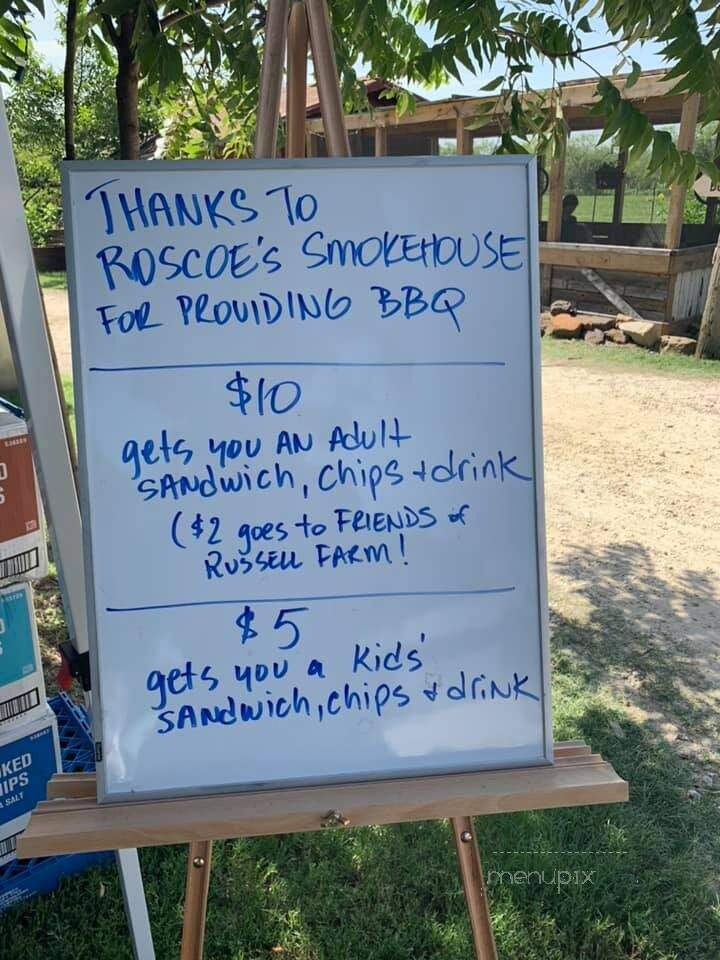 THANKS TO
ROSCOE'S SMOKEHOUSE
FOR PROVIDING BBQ
$10
gets you AN Adult
SANdwich, chips + drink
($2 goes to FRIENDS of
RUSSELL FARM!
$5
gets you a Kids'
SANdwich, chips & drink
KED
IPS
A SALT
menupix